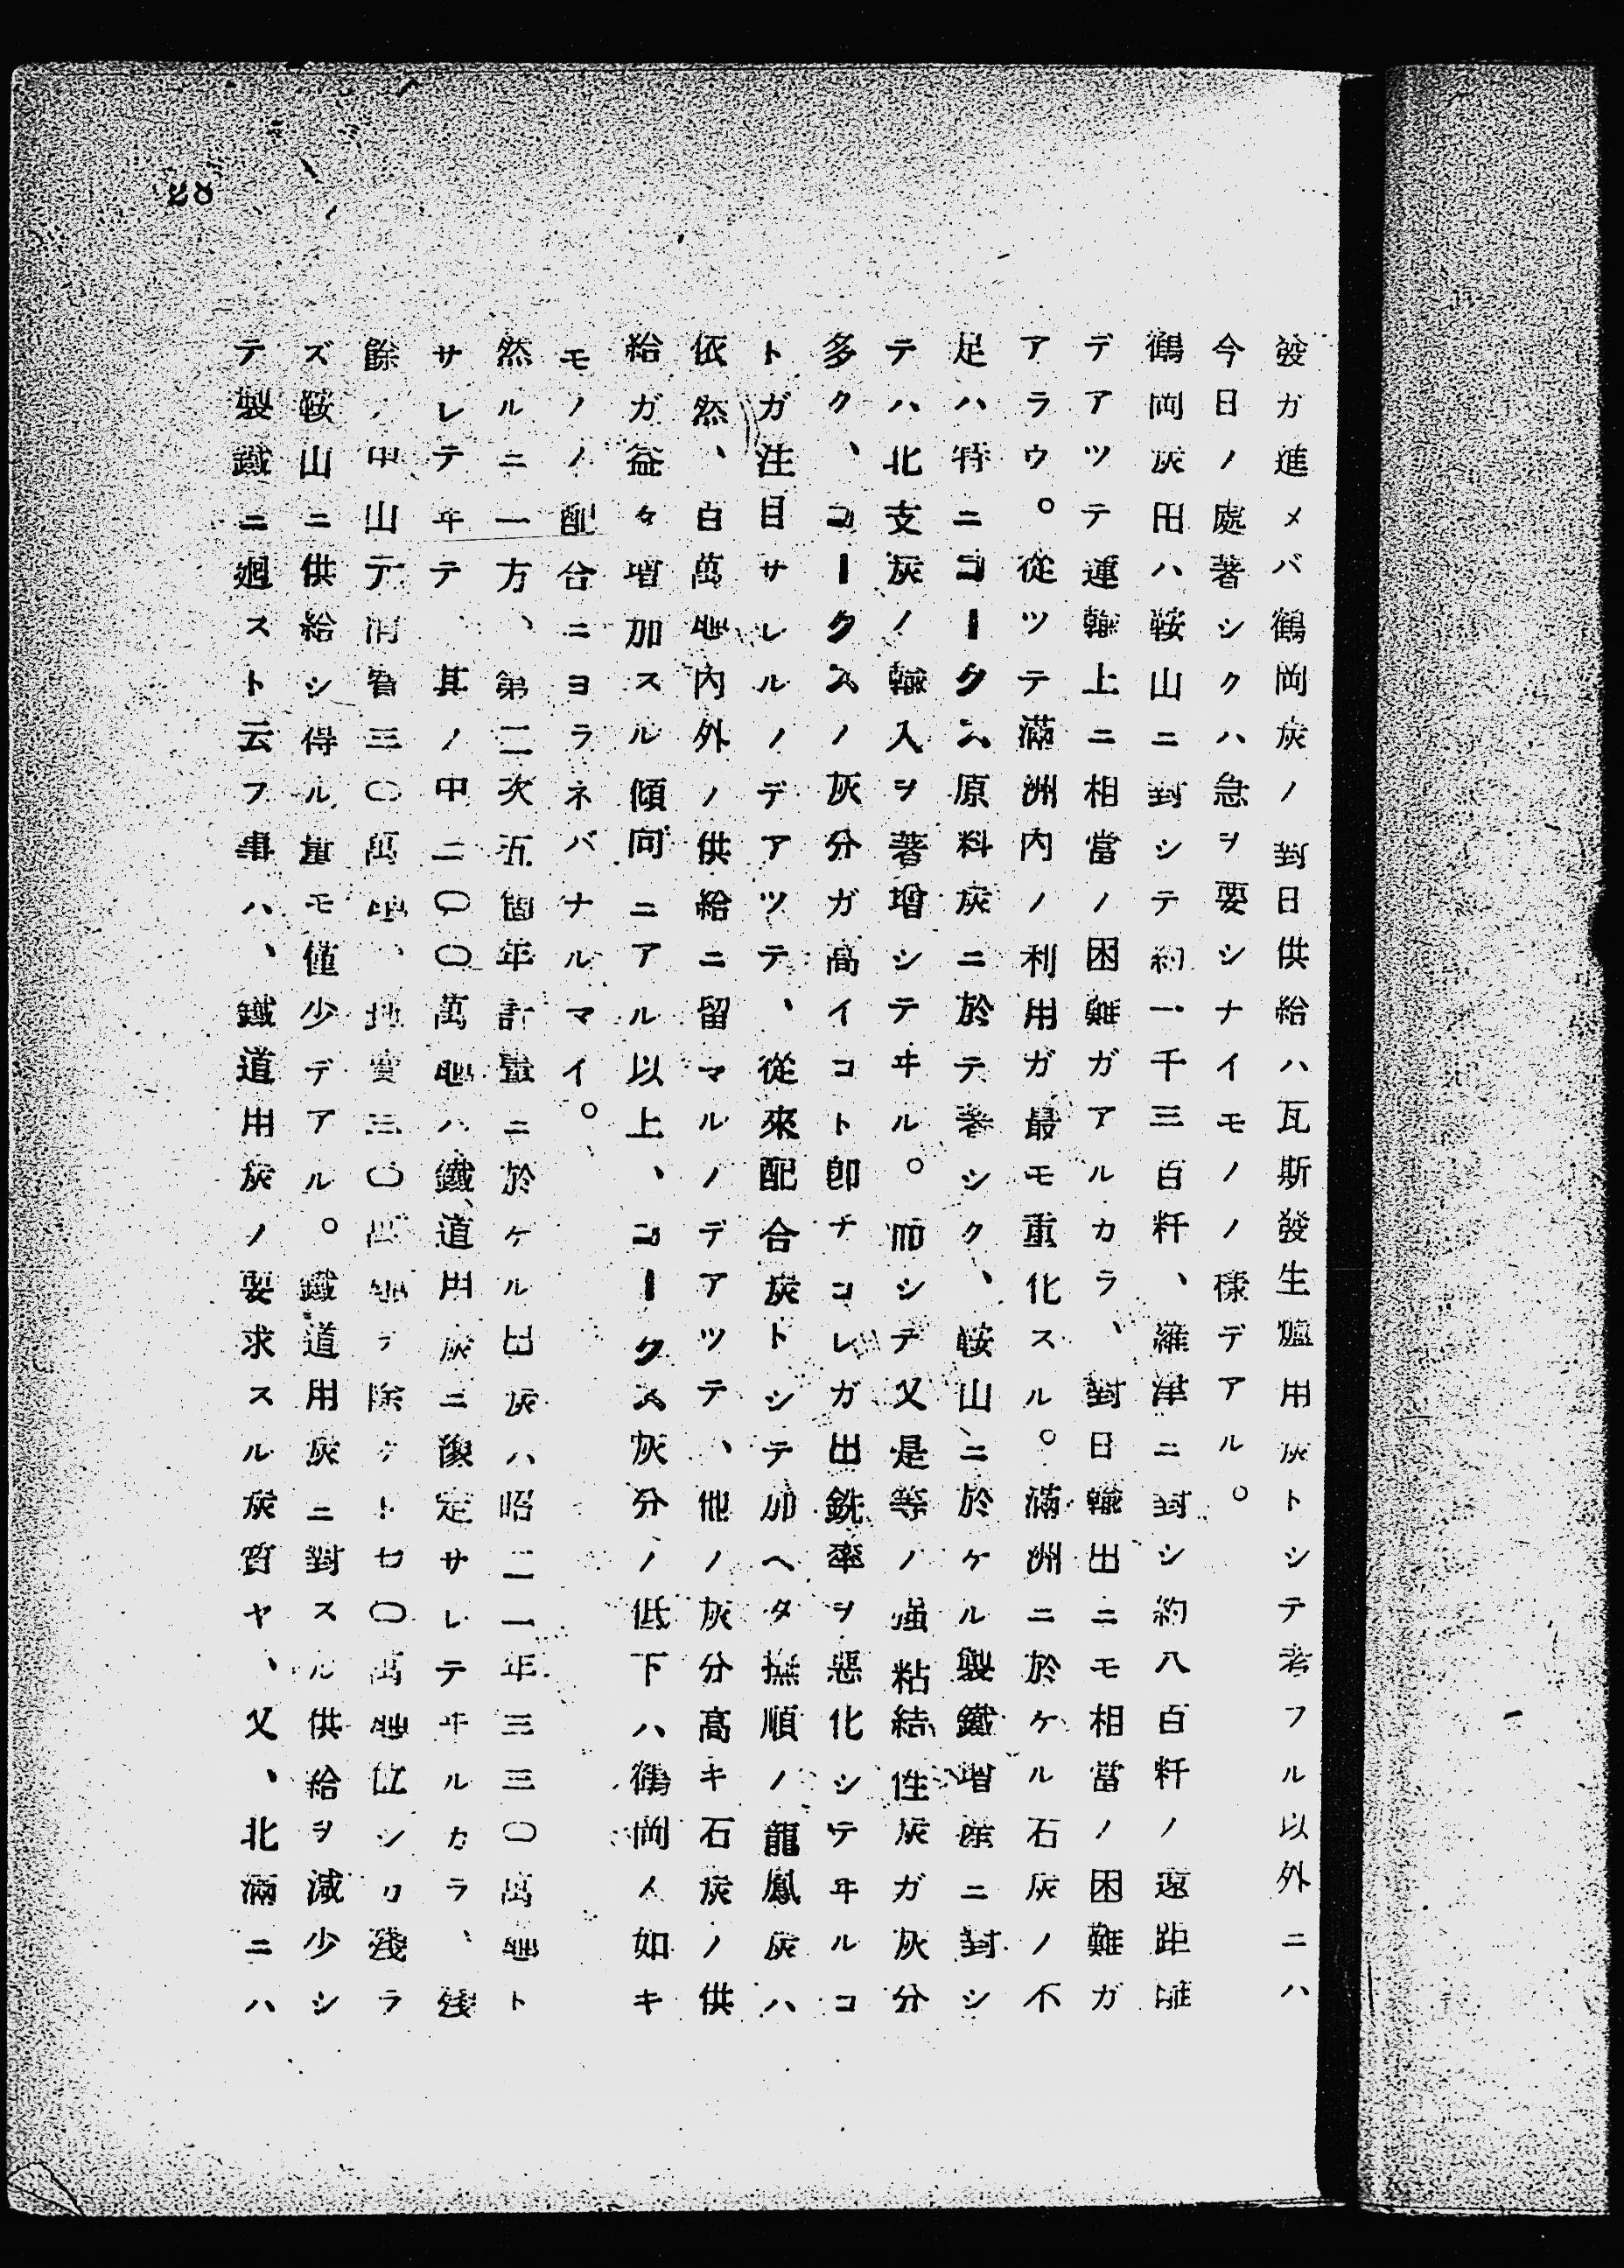 發ガ進メバ鶴岡炭ノ對日供給ハ瓦斯發生爐用炭トシテ考フル以外ニハ
今日ノ處著シクハ急ヲ要シナイモノノ樣デアル。
鶴岡炭田ハ鞍山ニ對シテ約一千三百粁、羅津ニ對シ約八百粁ノ遠距離
デアツテ運輸上ニ相當ノ困難ガアルカラ、對日輸出ニモ相當ノ困難ガ
アラウ。從ツテ滿洲内ノ利用ガ最モ重化スル。滿洲ニ於ケル石炭ノ不
足ハ特ニコークス原料炭ニ於テ著シク、鞍山ニ於ケル製鐵增産ニ對シ
テハ北支炭ノ輸入ヲ著增シテヰル。而シテ又是等ノ強粘結性炭ガ灰分
多ク、コークスノ灰分ガ高イコト卽チコレガ出銑率ヲ惡化シテヰルコ
トガ注目サレルノデアツテ、從來配合炭トシテ加ヘタ撫順ノ龍鳳炭ハ
依然、百萬瓲内外ノ供給ニ留マルノデアツテ、他ノ灰分高キ石炭ノ供
給ガ益々增加スル傾向ニアル以上、コークス灰分ノ低下ハ鶴岡ノ如キ
モノノ配合ニヨラネバナルマイ。
然ルニ一方、第二次五箇年計畫ニ於ケル出炭ハ昭二一年三三〇萬瓲ト
サレテヰテ、其ノ中二〇〇萬瓲ハ鐵道用炭ニ豫定サレテヰルカラ、殘
餘ノ中山元消費三〇萬瓲、地賣三〇萬瓲ヲ除クト七〇萬瓲位シカ殘ラ
ズ鞍山ニ供給シ得ル量モ僅少デアル。鐵道用炭ニ對スル供給ヲ減少シ
テ製鐵ニ廻スト云フ事ハ、鐵道用炭ノ要求スル炭質ヤ、又、北滿ニハ